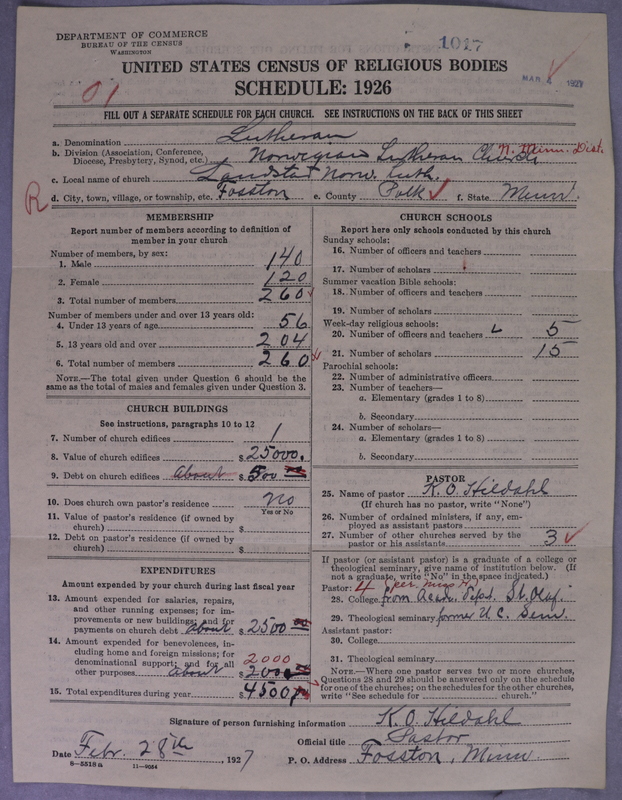 DEPARTMENT OF COMMERCE
BUREAU OF THE CENSUS
WASHINGTON
1017
UNITED STATES CENSUS OF RELIGIOUS BODIES
SCHEDULE: 1926
MAR 1927
01
FILL OUT A SEPARATE SCHEDULE FOR EACH CHURCH. SEE INSTRUCTIONS ON THE BACK OF THIS SHEET
a. Denomination Lutheran
b. Division (Association, Conference, Diocese, Presbytery, Synod, etc.) Norwegian Lutheran Church N. Minn. Dist.
c. Local name of church Landstad Norw. Luth.
R
d. City, town, village, or township, etc. Fosston e. County Polk f. State Minn.
MEMBERSHIP
Report number of members according to definition of
member in your church
Number of members, by sex:
1. Male 140
2. Female 120
3. Total number of members 260
Number of members under and over 13 years old:
4. Under 13 years of age 56
5. 13 years old and over 204
6. Total number of members 260
NOTE.—The total given under Question 6 should be
same as the total of males and females given under Question 3.
CHURCH BUILDINGS
See instructions, paragraphs 10 to 12
7. Number of church edifices 1
8. Value of church edifices $ 25000.
9. Debt on church edifices About $ 500
10. Does church own pastor's residence no
Yes or No
11. Value of pastor's residence (if owned by
church) $
12. Debt on pastor's residence (if owned by
church) $
EXPENDITURES
Amount expended by your church during last fiscal year
13. Amount expended for salaries, repairs,
and other running expenses; for im-
provements or new buildings; and for
payments on church debt about $ 2500 00
14. Amount expended for benevolences, in-
cluding home and foreign missions; for
denominational support; and for all 2000
other purposes about $ 2000
15. Total expenditures during year $ 4500
CHURCH SCHOOLS
Report here only schools conducted by this church
Sunday schools:
16. Number of officers and teachers
17. Number of scholars
Summer vacation Bible schools:
18. Number of officers and teachers
19. Number of scholars
Week-day religious schools:
20. Number of officers and teachers 5
21. Number of scholars 15
Parochial schools:
22. Number of administrative officers
23. Number of teachers—
a. Elementary (grades 1 to 8)
b. Secondary
24. Number of scholars—
a. Elementary (grades 1 to 8)
b. Secondary
PASTOR
25. Name of pastor K. O. Hildahl
(If church has no pastor, write "None")
26. Number of ordained ministers, if any, em-
ployed as assistant pastors
27. Number of other churches served by the
pastor or his assistants 3
If pastor (or assistant pastor) is a graduate of a college or
theological seminary, give name of institution below. (If
not a graduate, write "No" in the space indicated.)
Pastor: 4
28. College from Acad. Dept. St. Olaf
29. Theological seminary former U. C. Sem.
Assistant pastor:
30. College
31. Theological seminary
NOTE.—Where one pastor serves two or more churches,
Questions 28 and 29 should be answered only on the schedule
for one of the churches; on the schedules for the other churches,
write "See schedule for church."
Signature of person furnishing information K. O. Hildahl
Official title Pastor
Date Febr. 28th, 1927 P. O. Address Fosston, Minn.
8-5518a 11-9054